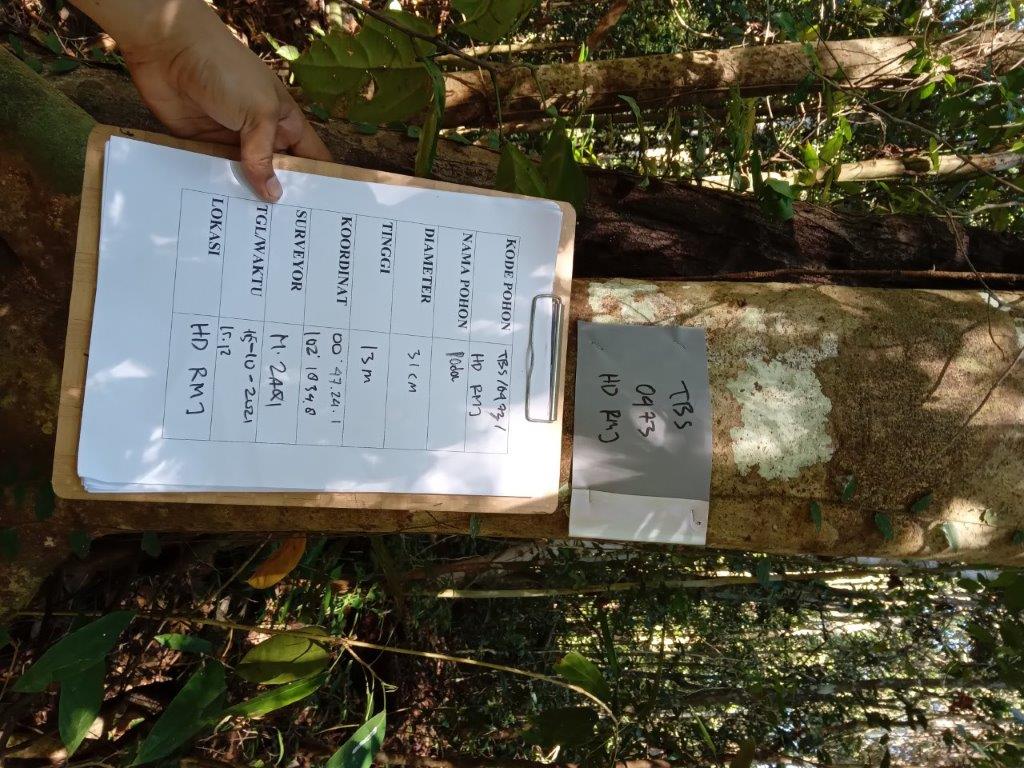 TBS
0973
HD RMJ
KODE POHON TBS/0973/
HD RMJ
NAMA POHON
DIAMETER 31 CM
TINGGI 13 m
KOORDINAT 00° 47. 24. 1
102° 18 34. 8
SURVEYOR M. ZAQI
TGL/WAKTU 15-10-2021
15.12
LOKASI HD RMJ